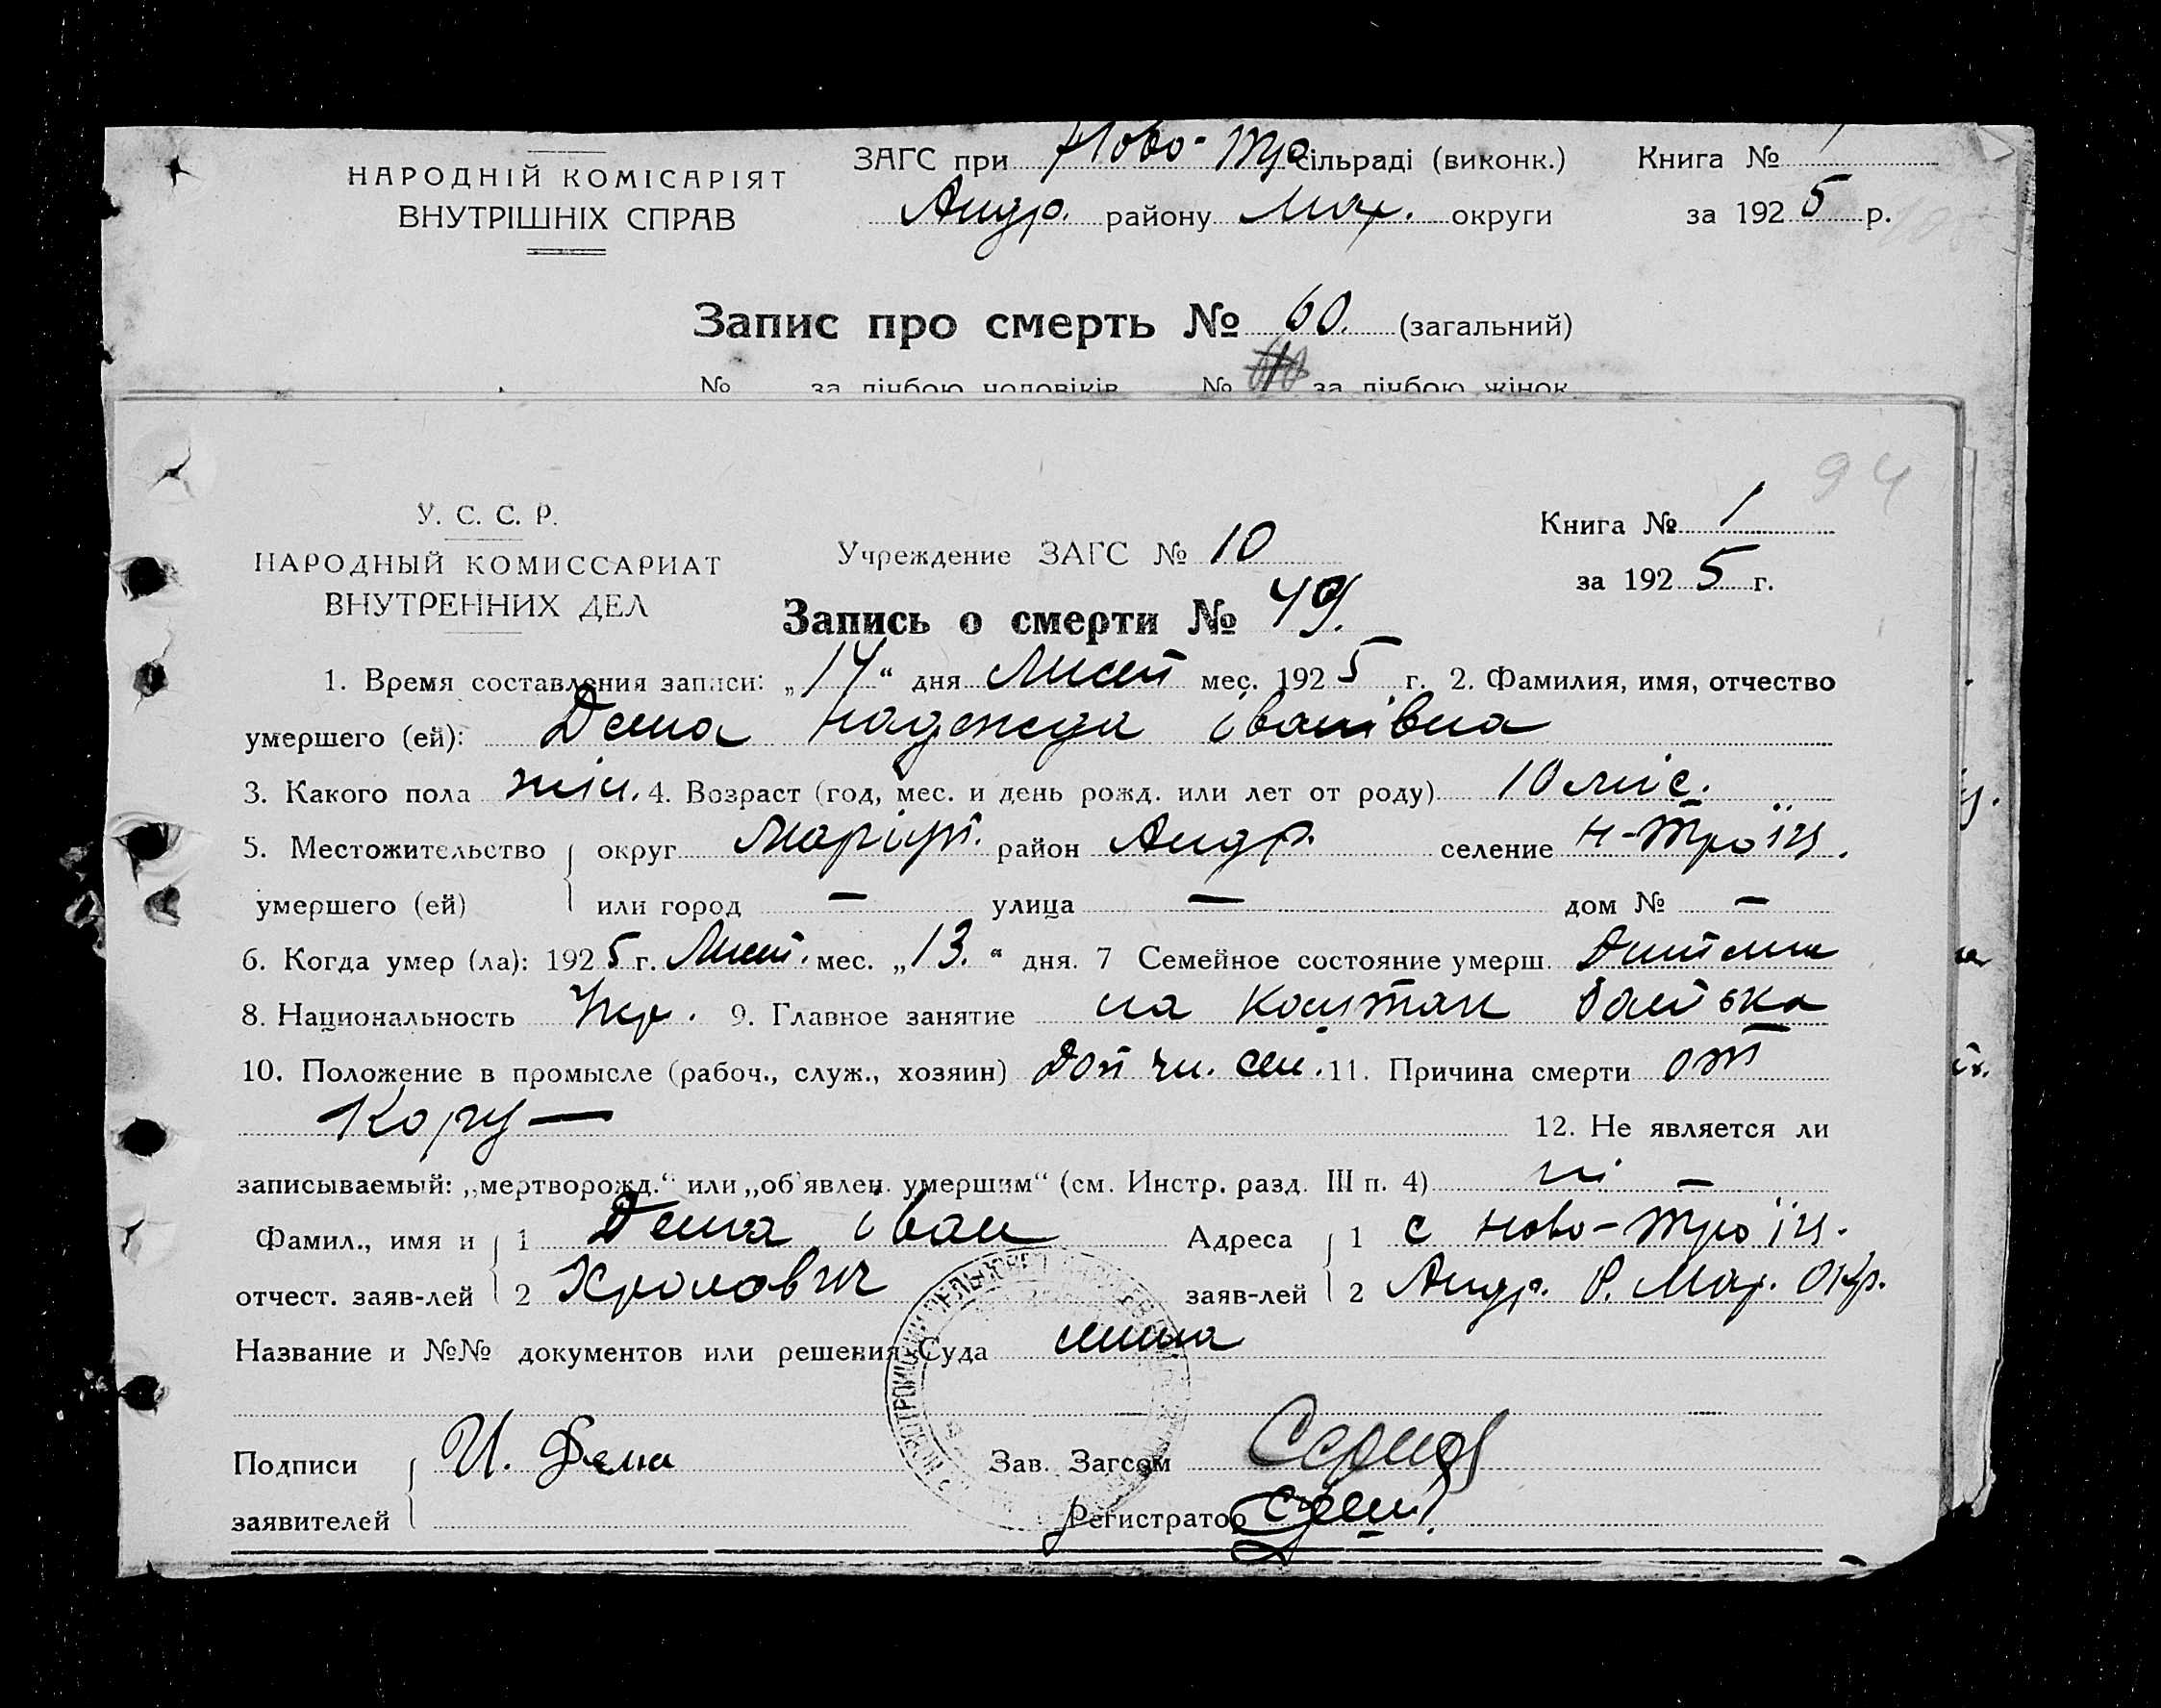 НАРОДНІЙ КОМІСАРІЯТ
ВНУТРІШНІХ СПРАВ
ЗАГС при Ново-Тро сільраді (виконк.)
Андр. району Мар. округи
Книга № 1
за 1925 р.
Запис про смерть № 60. (загальний)
№ за лічбою чоловіків № за лічбою жінок
94
У. С. С. Р.
НАРОДНЫЙ КОМИССАРИАТ
ВНУТРЕННИХ ДЕЛ
Учреждение ЗАГС № 10
Книга № 1
за 1925 г.
Запись о смерти № 49.
1. Время составления записи: „14“ дня Лист мес. 1925 г. 2. Фамилия, имя, отчество
умершего (ей): Дема Надежда Іванівна
3. Какого пола жін. 4. Возраст (год, мес. и день рожд. или лет от роду) 10 міс.
5. Местожительство округ Маріуп. район Андр. селение Н-Троїц.
умершего (ей) или город — улица — дом № —
6. Когда умер (ла): 1925 г. Лист. мес. „13.“ дня. 7 Семейное состояние умерш. Дитина
8. Национальность Укр. 9. Главное занятие на коштах батька
10. Положение в промысле (рабоч., служ., хозяин) сем. 11. Причина смерти от
Кору —
12. Не является ли
записываемый: „мертворожд.“ или „об'явлен. умершим“ (см. Инстр. разд. III п. 4) ні —
Фамил., имя и 1 Дема Іван Адреса 1 с Ново-Троїц.
отчест. заяв-лей 2 Хролович заяв-лей 2 Андр. Р. Мар. Окр.
Название и №№ документов или решения Суда нима
Подписи И. Дема Зав. Загсом
заявителей Регистратор